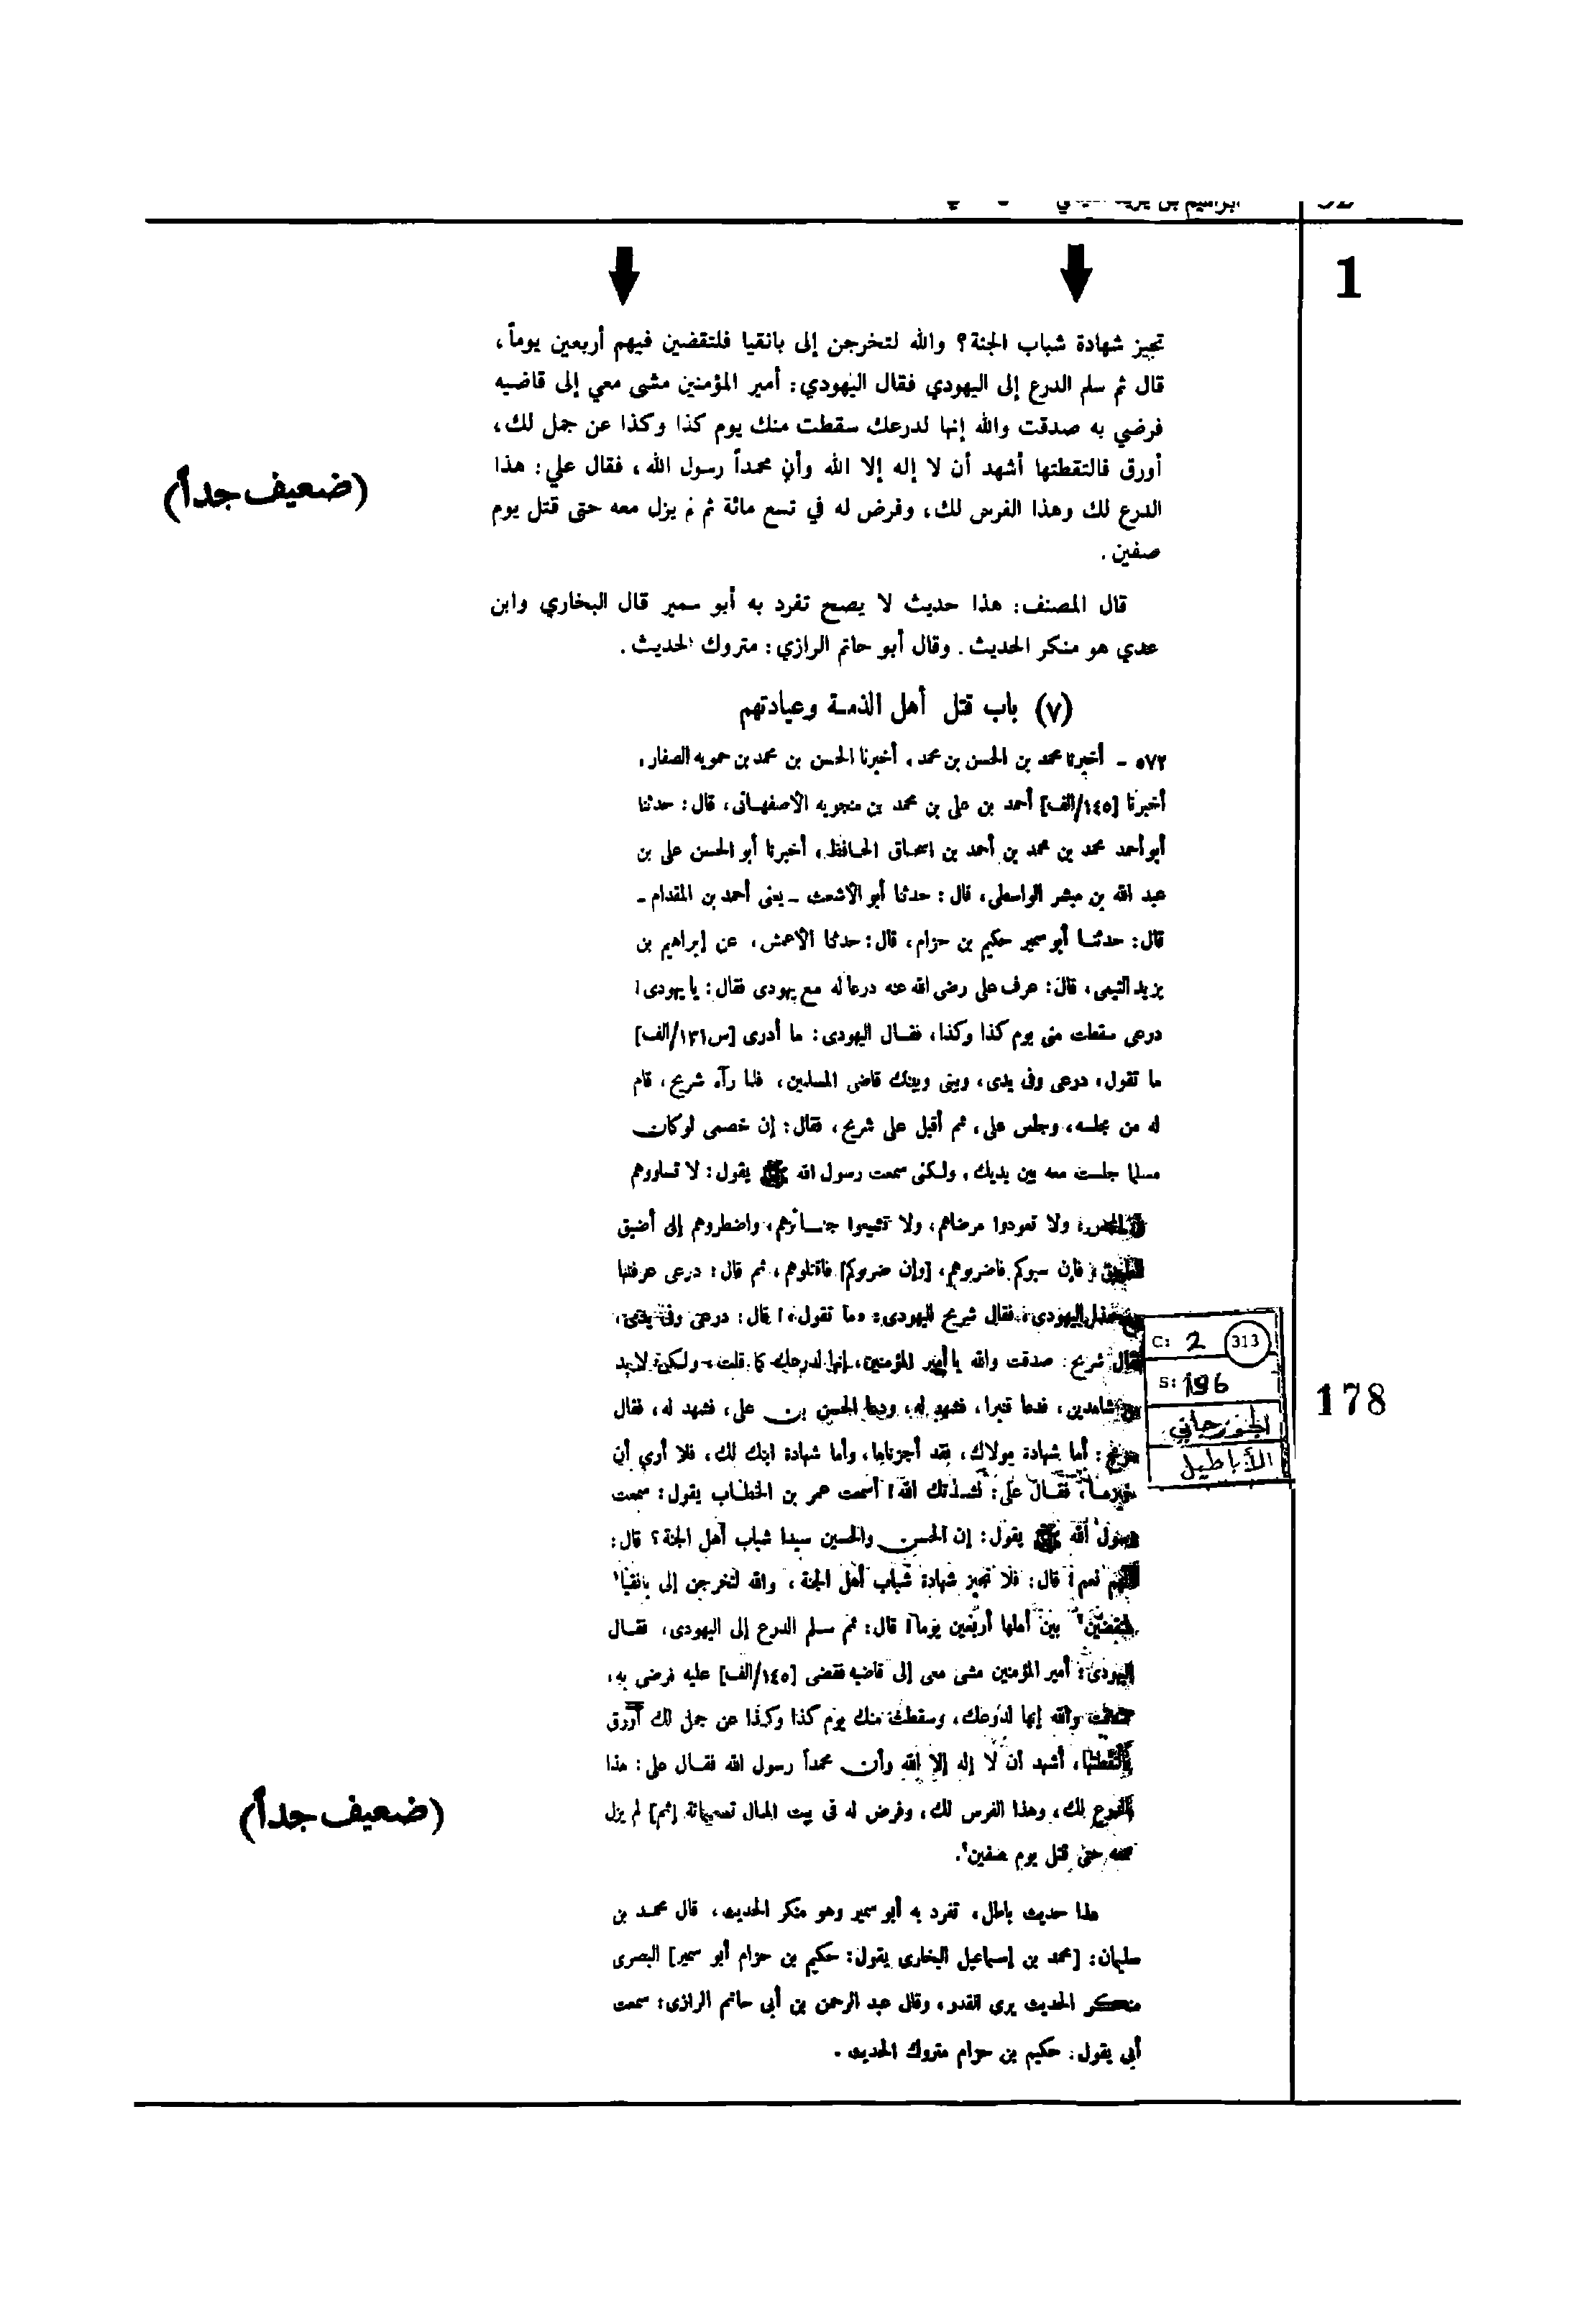 ابراهيم بن يزيد
1
تجيز شهادة شباب الجنة؟ والله لتخرجن إلى بانقيا فلتقضين فيهم أربعين يوماً،
قال ثم سلم الدرع إلى اليهودي فقال اليهودي: أمير المؤمنين مشى معي إلى قاضيه
فرضي به صدقت والله إنها لدرعك سقطت منك يوم كذا وكذا عن جمل لك،
أورق فالتقطتها أشهد أن لا إله إلا الله وأن محمداً رسول الله، فقال علي: هذا
(ضعيف جداً)
الدرع لك وهذا الفرس لك، وفرض له في تسع مائة ثم لم يزل معه حتى قتل يوم
صفين.
قال المصنف: هذا حديث لا يصح تفرد به أبو سمير قال البخاري وابن
عدي هو منكر الحديث. وقال أبو حاتم الرازي: متروك الحديث.
(٧) باب قتل أهل الذمة وعيادتهم
٥٧٢ - أخبرنا محمد بن الحسن بن محمد، أخبرنا الحسن بن محمد بن حمويه الصفار،
أخبرنا [١٤٥/الف] أحمد بن على بن محمد بن منجويه الأصفهانى، قال: حدثنا
أبو أحمد محمد بن محمد بن أحمد بن اسحاق الحافظ، أخبرنا أبو الحسن على بن
عبد الله بن مبشر الواسطى، قال: حدثنا أبو الأشعث - يعنى أحمد بن المقدام -
قال: حدثنا أبو سمير حكيم بن حزام، قال: حدثنا الأعمش، عن إبراهيم بن
يزيد التيمى، قال: عرف على رضى الله عنه درعا له مع يهودى فقال: يا يهودى!
درعى سقطت منى يوم كذا وكذا، فقال اليهودى: ما أدرى [س١٣١/الف]
ما تقول، درعى وفى يدى، وبينى وبينك قاضى المسلمين، فلما رآه شريح، قام
له من مجلسه، وجلس على، ثم أقبل على شريح، فقال: إن خصمى لو كان
مسلما جلست معه بين يديك، ولكنى سمعت رسول الله ﷺ يقول: لا تساووهم
ولا تعودوا مرضاهم، ولا تشيعوا جنائزهم، واضطروهم إلى أضيق
فإن سبوكم فاضربوهم، [وإن ضربوكم] فاقتلوهم، ثم قال: درعى عرفتها
هذا اليهودى، فقال شريح لليهودى: وما تقول؟ قال: درعى وفى يدى،
قال شريح: صدقت والله يا أمير المؤمنين، إنها لدرعك كما قلت، ولكن لا بد
C: 2 313
من شاهدين، فدعا قنبرا، فشهد له، ودعا الحسن بن على، فشهد له، فقال
S: 196
178
الجوزجاني
شريح: أما شهادة مولاك، فقد أجزناها، وأما شهادة ابنك لك، فلا أرى أن
الأباطيل
فقال على: نشدتك الله! أسمعت عمر بن الخطاب يقول: سمعت
رسول الله ﷺ يقول: إن الحسن والحسين سيدا شباب أهل الجنة؟ قال:
اللهم نعم! قال: فلا تجيز شهادة شباب أهل الجنة، والله لتخرجن إلى بانقيا
بين أهلها أربعين يوما! قال: ثم سلم الدرع إلى اليهودى، فقال
اليهودى: أمير المؤمنين مشى معى إلى قاضيه فقضى [١٤٥/الف] عليه فرضى به،
صدقت والله إنها لدرعك، وسقطت منك يوم كذا وكذا عن جمل لك أورق
فالتقطتها، أشهد أن لا إله إلا الله وأن محمداً رسول الله فقال على: هذا
الدرع لك، وهذا الفرس لك، وفرض له فى بيت المال تسعمائة [ثم] لم يزل
(ضعيف جداً)
معه حتى قتل يوم صفين.
هذا حديث باطل، تفرد به أبو سمير وهو منكر الحديث، قال محمد بن
سليمان: [محمد بن إسماعيل البخارى يقول: حكيم بن حزام أبو سمير] البصرى
منكر الحديث يرى القدر، وقال عبد الرحمن بن أبى حاتم الرازى: سمعت
أبى يقول: حكيم بن حزام متروك الحديث.